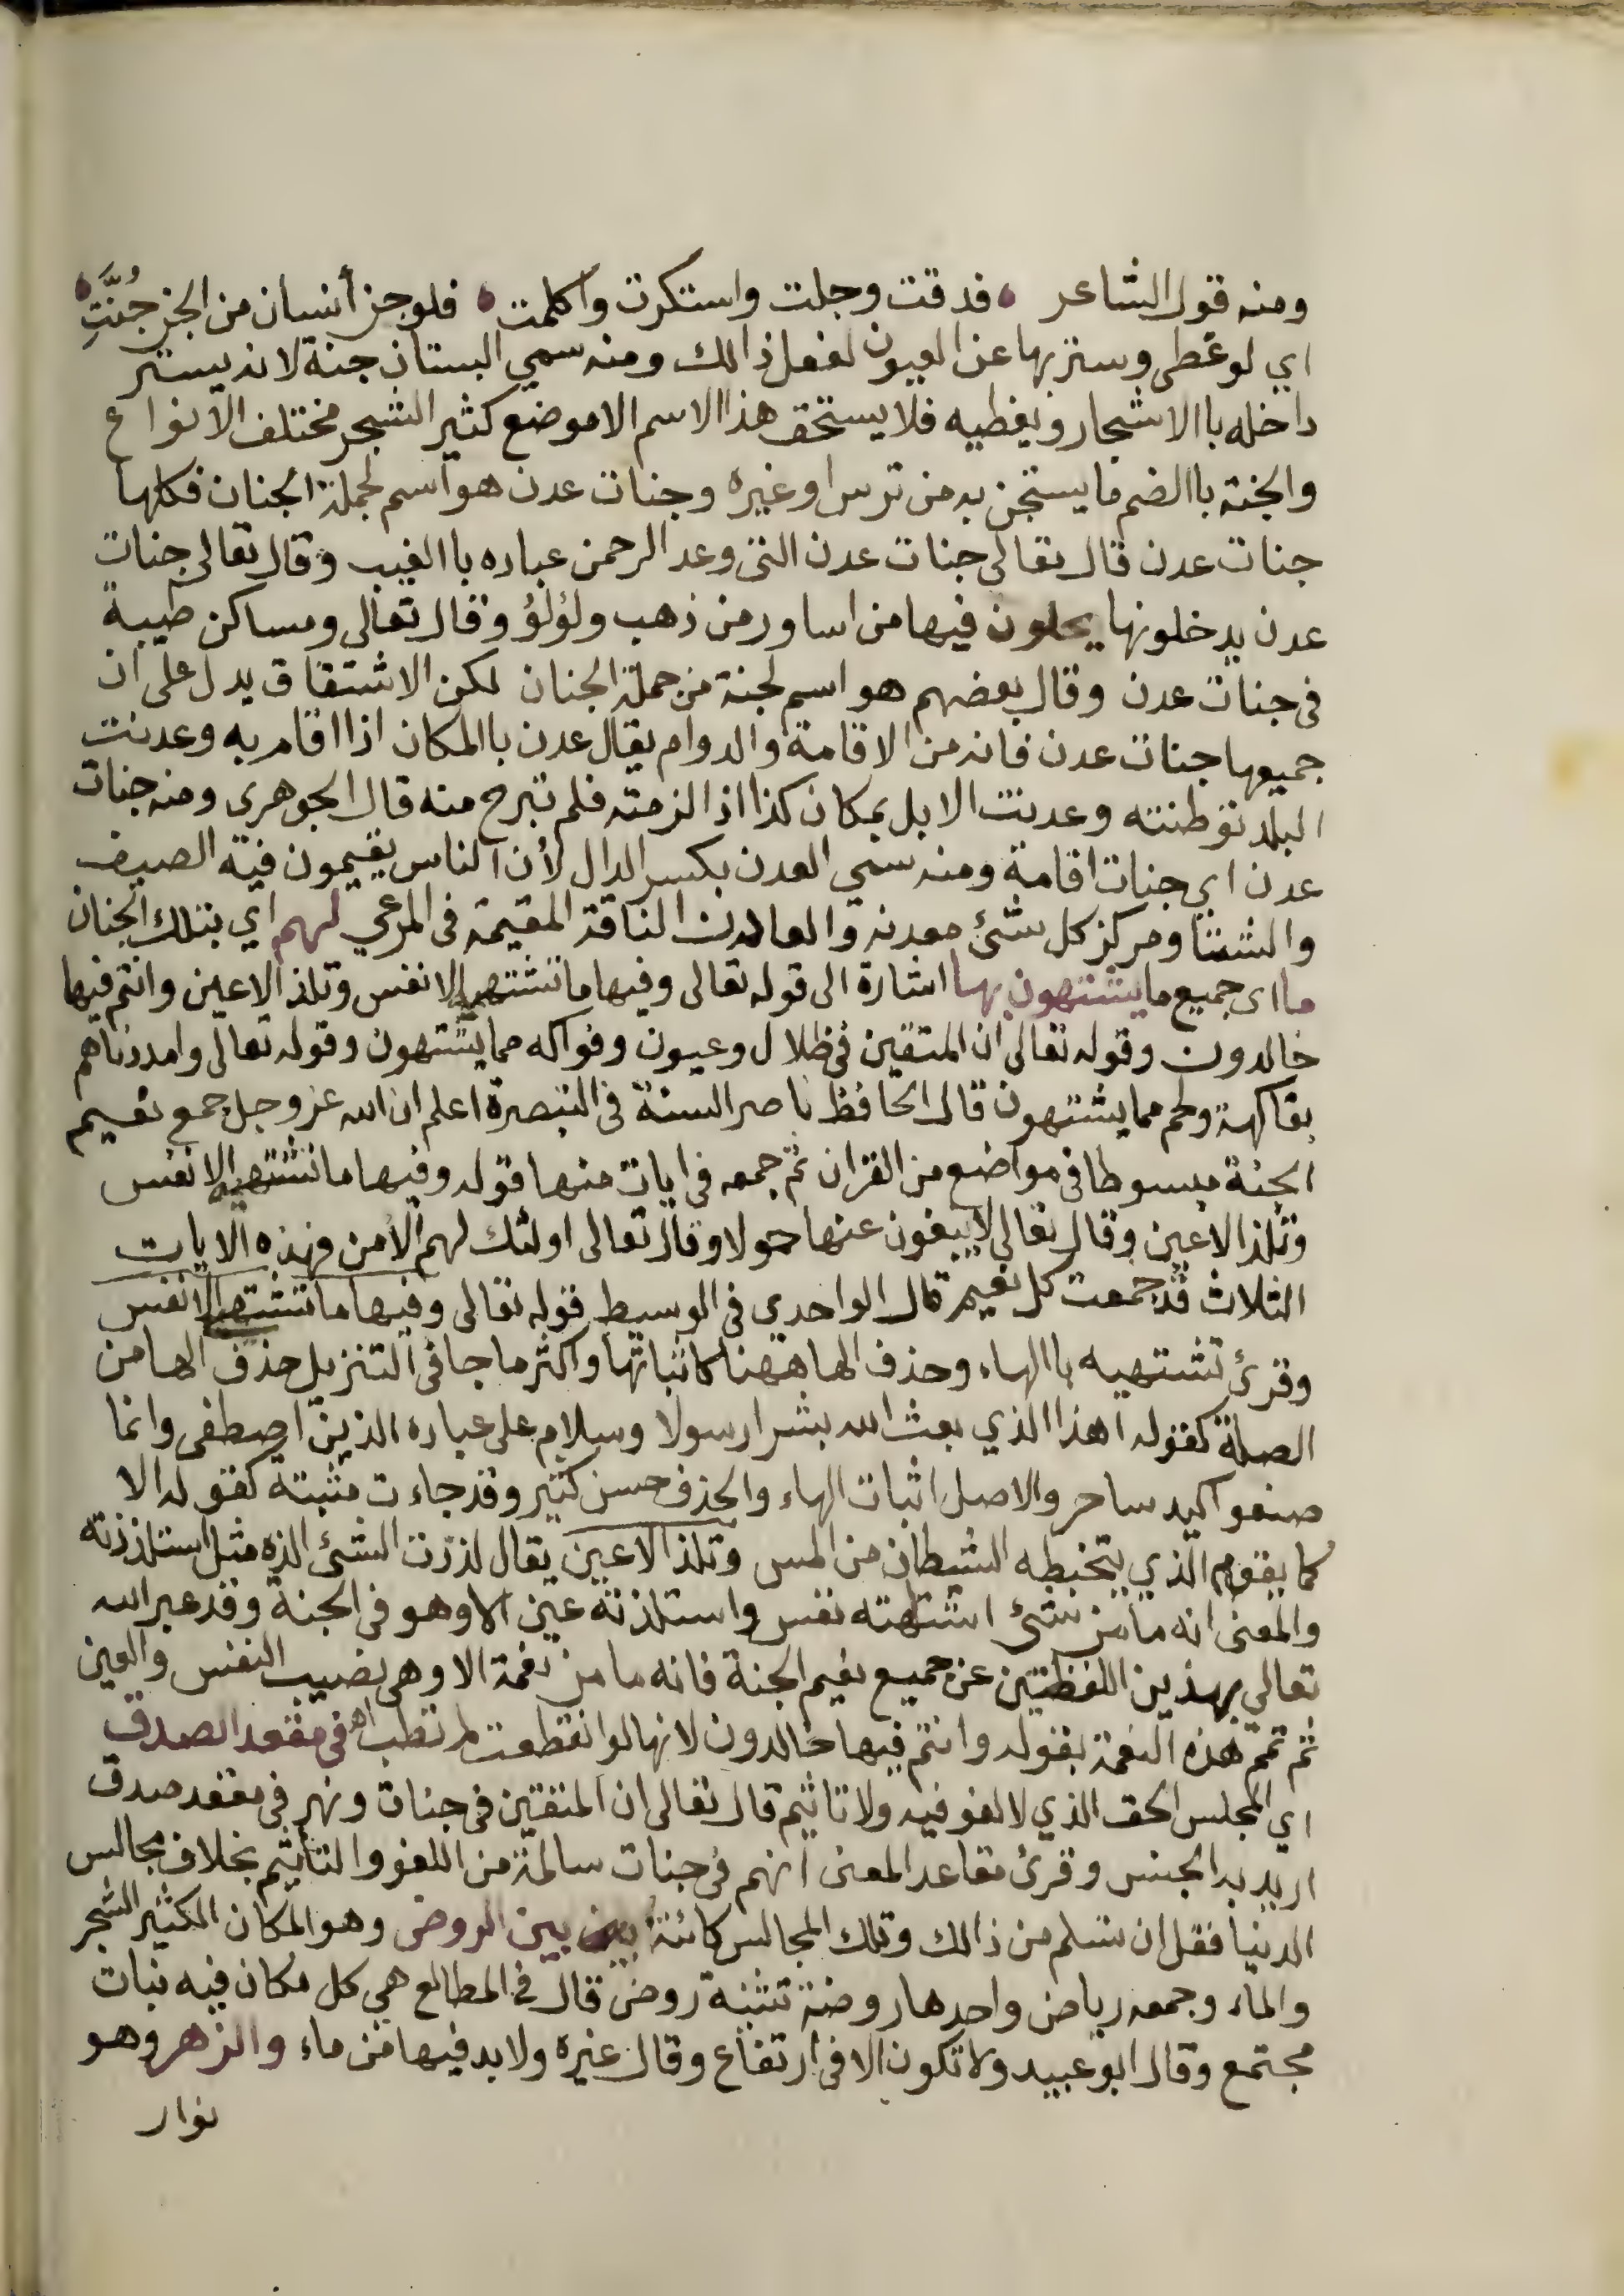 ومنه قول الشاعر ٥ فدقت وجلت واستكرت واكلمت ٥ فلو جن أنسان من الجن جُنَّتِ ٥
اي لو غطى وستر بها عن العيون لفعل ذالك ومنه سمي البستان جنة لانه يستر
داخله باالاشجار ويغطيه فلا يستحق هذا الاسم الا موضع كثير الشجر مختلف الانواع
والجنة باالضم ما يستجن به من ترس او غيره وجنات عدن هو اسم لجملة الجنان فكلها
جنات عدن قال تعالى جنات عدن التى وعد الرحمن عباده باالغيب وقال تعالى جنات
عدن يدخلونها يحلون فيها من اساور من ذهب ولؤلؤ وقال تعالى ومساكن طيبة
فى جنات عدن وقال بعضهم هو اسم لجنة من جملة الجنان لكن الاشتقاق يدل على ان
جميعها جنات عدن فانه من الاقامة والدوام يقال عدن باالمكان اذا اقام به وعدنت
البلد توطنته وعدنت الابل بمكان كذا اذا لزمته فلم تبرح منه قال الجوهرى ومنه جنات
عدن اي جنات اقامة ومنه سمي المعدن بكسر الدال لأن الناس يقيمون فيه الصيف
والشتا ومركز كل شئ معدنه والعادن الناقة المقيمة فى المرعي لهم اي بتلك الجنان
ما اى جميع ما يشتهون بها اشارة الى قوله تعالى وفيها ما تشتهيه الانفس وتلذ الاعين وانتم فيها
خالدون وقوله تعالى ان المتقين فى ظلال وعيون وفواكه مما يشتهون وقوله تعالى وامددناهم
بفاكهة ولحم مما يشتهون قال الحافظ ناصر السنة فى التبصرة اعلم ان الله عز وجل جمع نعيم
الجنة مبسوطا فى مواضع من القران ثم جمعه فى ايات منها قوله وفيها ما تشتهيه الانفس
وتلذ الاعين وقال تعالى لا يبغون عنها حولا وقال تعالى اولئك لهم الامن فهذه الايات
الثلاث قد جمعت كل نعيم قال الواحدي فى الوسيط قوله تعالى وفيها ما تشتهي الانفس
وقرئ تشتهيه باالهاء وحذف الها ههنا كاثباتها واكثر ما جا فى التنزيل حذف الها من
الصلة كقوله اهذا الذي بعث الله بشرا رسولا وسلام على عباده الذين اصطفى وانما
صنعوا كيد ساحر والاصل اثبات الهاء والحذف حسن كثير وقد جاءت مثبتة كقوله الا
كما يقوم الذي يتخبطه الشيطان من المس وتلذ الاعين يقال لذذت الشئ الذه مثل استلذذته
والمعنى انه ما من شئ اشتهته نفس واستلذته عين الا وهو فى الجنة وقد عبر الله
تعالى بهذين اللفظتين عن جميع نعيم الجنة فانه ما من نعمة الا وهى نصيب النفس والعين
ثم تمم هذه النعمة بقوله وانتم فيها خالدون لانها لو انقطعت لم تطب اه فى مقعد الصدق
اي المجلس الحق الذي لا لغو فيه ولا تاثيم قال تعالى ان المتقين فى جنات ونهر فى مقعد صدق
اريد به الجنس وقرئ مقاعد المعنى انهم فى جنات سالمة من اللغو والتأثيم بخلاف مجالس
الدنيا فقل ان تسلم من ذالك وتلك المجالس كائنة بين الروض وهو المكان الكثير الشجر
والماء وجمعه رياض واحدها روضة تثنية روض قال فى المطالع هي كل مكان فيه نبات
مجتمع وقال ابو عبيد ولا تكون الا فى ارتفاع وقال غيره ولا بد فيها من ماء والزهر وهو
نوار